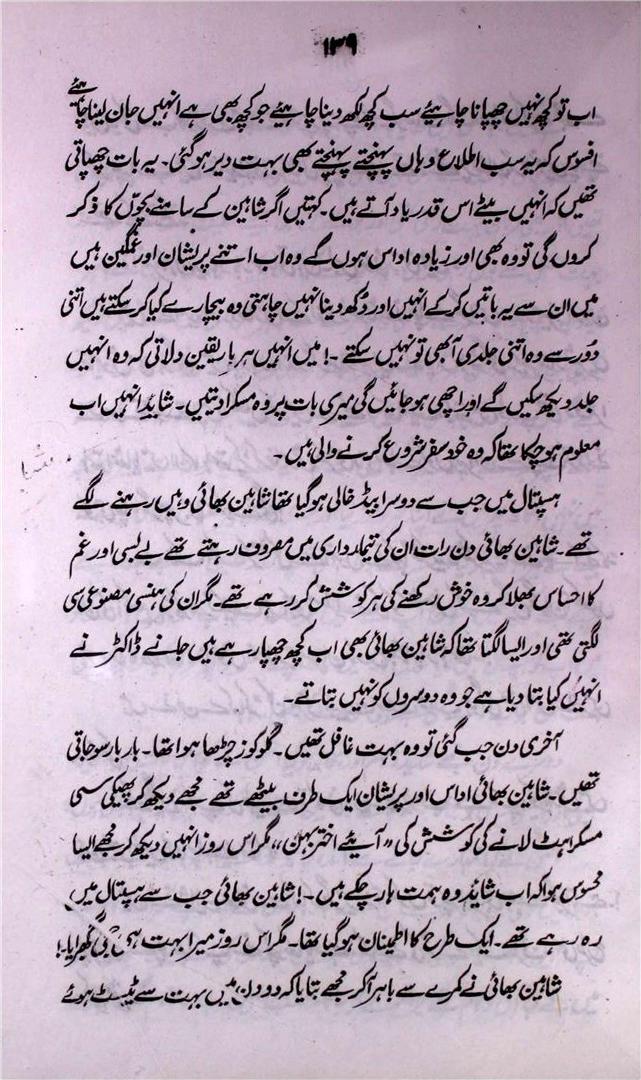 ۱۳۹
اب تو کچھ نہیں چھپانا چاہیئے سب کچھ لکھ دینا چاہیئے جو کچھ بھی ہے انہیں جان لینا چاہئے
افسوس کہ یہ سب اطلاع وہاں پہنچتے پہنچتے بھی بہت دیر ہو گئی۔ یہ بات چھپاتی
تھیں کہ انہیں بیٹے اس قدر یاد آتے ہیں۔ کہتیں اگر شاہین کے سامنے بچوں کا ذکر
کروں گی تو وہ بھی اور زیادہ اداس ہوں گے وہ اب اتنے پریشان اور غمگین ہیں
میں ان سے یہ باتیں کر کے انہیں اور دُکھ دینا نہیں چاہتی وہ بیچارے کیا کر سکتے ہیں اتنی
دُور سے وہ اتنی جلدی آ بھی تو نہیں سکتے۔! میں انہیں ہر بار یقین دلاتی کہ وہ انہیں
جلد دیکھ سکیں گے اور اچھی ہو جائیں گی میری بات پر وہ مسکرا دیتیں۔ شاید انہیں اب
معلوم ہو چکا تھا کہ وہ خود سفر شروع کرنے والی ہیں۔
ہسپتال میں جب سے دوسرا بیڈ خالی ہو گیا تھا شاہین بھائی وہیں رہنے لگے
تھے۔ شاہین بھائی دن رات ان کی تیمارداری میں مصروف رہتے تھے بے بسی اور غم
کا احساس بھلا کر وہ خوش رکھنے کی ہر کوشش کر رہے تھے۔ مگر ان کی ہنسی مصنوعی سی
لگتی تھی اور ایسا لگتا تھا کہ شاہین بھائی بھی اب کچھ چھپا رہے ہیں جانے ڈاکٹر نے
انہیں کیا بتا دیا ہے جو وہ دوسروں کو نہیں بتاتے۔
آخری دن جب گئی تو وہ بہت غافل تھیں۔ گلوکوز چڑھا ہوا تھا۔ بار بار سو جاتی
تھیں۔ شاہین بھائی اداس اور پریشان ایک طرف بیٹھے تھے مجھے دیکھ کر پھیکی سی
مسکراہٹ لانے کی کوشش کی "آیئے اختر بہن"، مگر اس روز انہیں دیکھ کر مجھے ایسا
محسوس ہوا کہ اب شاید وہ ہمت ہار چکے ہیں۔! شاہین بھائی جب سے ہسپتال میں
رہ رہے تھے۔ ایک طرح کا اطمینان ہو گیا تھا۔ مگر اس روز میرا بہت ہی جی گھبرایا۔!
شاہین بھائی نے کمرے سے باہر آ کر مجھے بتایا کہ دو دن میں بہت سے ٹیسٹ ہوئے